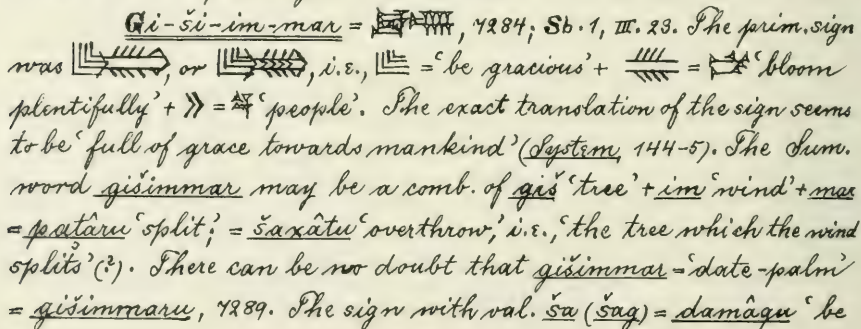 Gi-ši-im-mar = 𒊷, 7284; Sb. 1, III. 23. The prim. sign
was , or , i.e., = ‘be gracious’ + = ‘bloom
plentifully’ + = ‘people’. The exact translation of the sign seems
to be ‘full of grace towards mankind’ (System, 144-5). The Sum.
word gišimmar may be a comb. of giš ‘tree’ + im ‘wind’ + mar
= patâru ‘split’; = šaxâtu ‘overthrow,’ i.e., ‘the tree which the wind
splits’ (?). There can be no doubt that gišimmar = ‘date-palm’
= gišimmaru, 7289. The sign with val. ša (šag) = damâqu ‘be